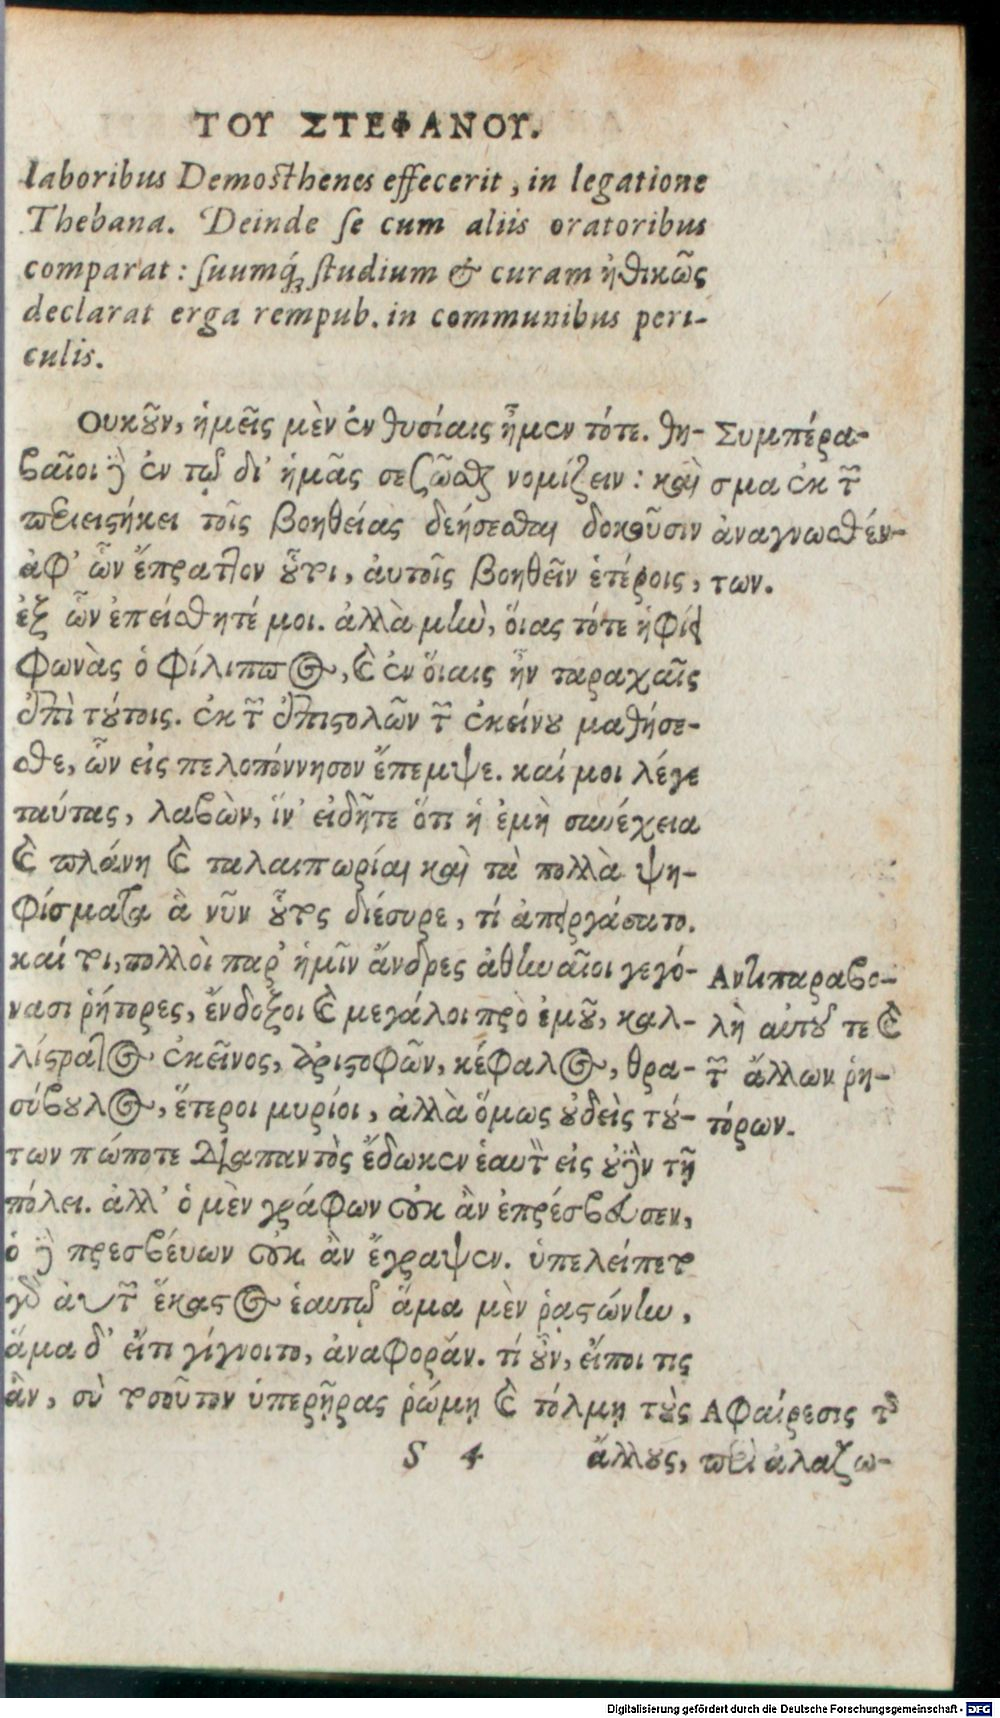 ΤΟΥ ΣΤΕΦΑΝΟΥ.
laboribus Demosthenes effecerit, in legatione
Thebana. Deinde ſe cum aliis oratoribus
comparat: ſuumq́ꝫ ſtudium & curam ἠθικῶς
declarat erga rempub. in communibus peri-
culis.
Οὐκοῦν, ἡμεῖς μὲν ἐν θυσίαις ἦμεν τότε. θη-
βαῖοι δὲ ἐν τῷ δι' ἡμᾶς σεζῶσθαι νομίζειν: καὶ
περιειστήκει τοῖς βοηθείας δεήσεσθαι δοκοῦσιν
ἀφ' ὧν ἔπραττον οὗτοι, αὐτοῖς βοηθεῖν ἑτέροις,
ἐξ ὧν ἐπείσθητέ μοι. ἀλλὰ μὴν, οἵας τότε ἠφίει
φωνὰς ὁ φίλιππος, καὶ ἐν οἵαις ἦν ταραχαῖς
ἐπὶ τούτοις. ἐκ τῶν ἐπιστολῶν τῶν ἐκείνου μαθήσε-
σθε, ὧν εἰς πελοπόννησον ἔπεμψε. καί μοι λέγε
ταύτας, λαβὼν, ἵν' εἰδῆτε ὅτι ἡ ἐμὴ συνέχεια
καὶ πλάνη καὶ ταλαιπωρίαι καὶ τὰ πολλὰ ψη-
φίσματα ἃ νῦν οὗτος διέσυρε, τί ἀπειργάσατο.
καί τοι, πολλοὶ παρ' ἡμῖν ἄνδρες ἀθηναῖοι γεγό-
νασι ῥήτορες, ἔνδοξοι καὶ μεγάλοι πρὸ ἐμοῦ, καλ-
λίστρατος ἐκεῖνος, ἀριστοφῶν, κέφαλος, θρα-
σύβουλος, ἕτεροι μυρίοι, ἀλλὰ ὅμως οὐδεὶς τού-
των πώποτε διαπαντὸς ἔδωκεν ἑαυτὸν εἰς οὐδὲν τῇ
πόλει. ἀλλ' ὁ μὲν γράφων οὐκ ἂν ἐπρέσβευσεν,
ὁ δὲ πρεσβεύων οὐκ ἂν ἔγραψεν. ὑπελείπετο
γὰρ αὐτῶν ἕκαστος ἑαυτῷ ἅμα μὲν ῥαστώνην,
ἅμα δ' εἴ τι γίγνοιτο, ἀναφοράν. τί οὖν, εἴποι τις
ἂν, σὺ τοσοῦτον ὑπερῇρας ῥώμῃ καὶ τόλμῃ τοὺς
S 4 ἄλλους,
Συμπέρα-
σμα ἐκ τῶν
ἀναγνωσθέν-
των.
Αντιπαραβο-
λὴ αὐτοῦ τε καὶ
τῶν ἄλλων ῥη-
τόρων.
Αφαίρεσις τοῦ
περὶ ἀλαζω-
Digitalisierung gefördert durch die Deutsche Forschungsgemeinschaft - DFG